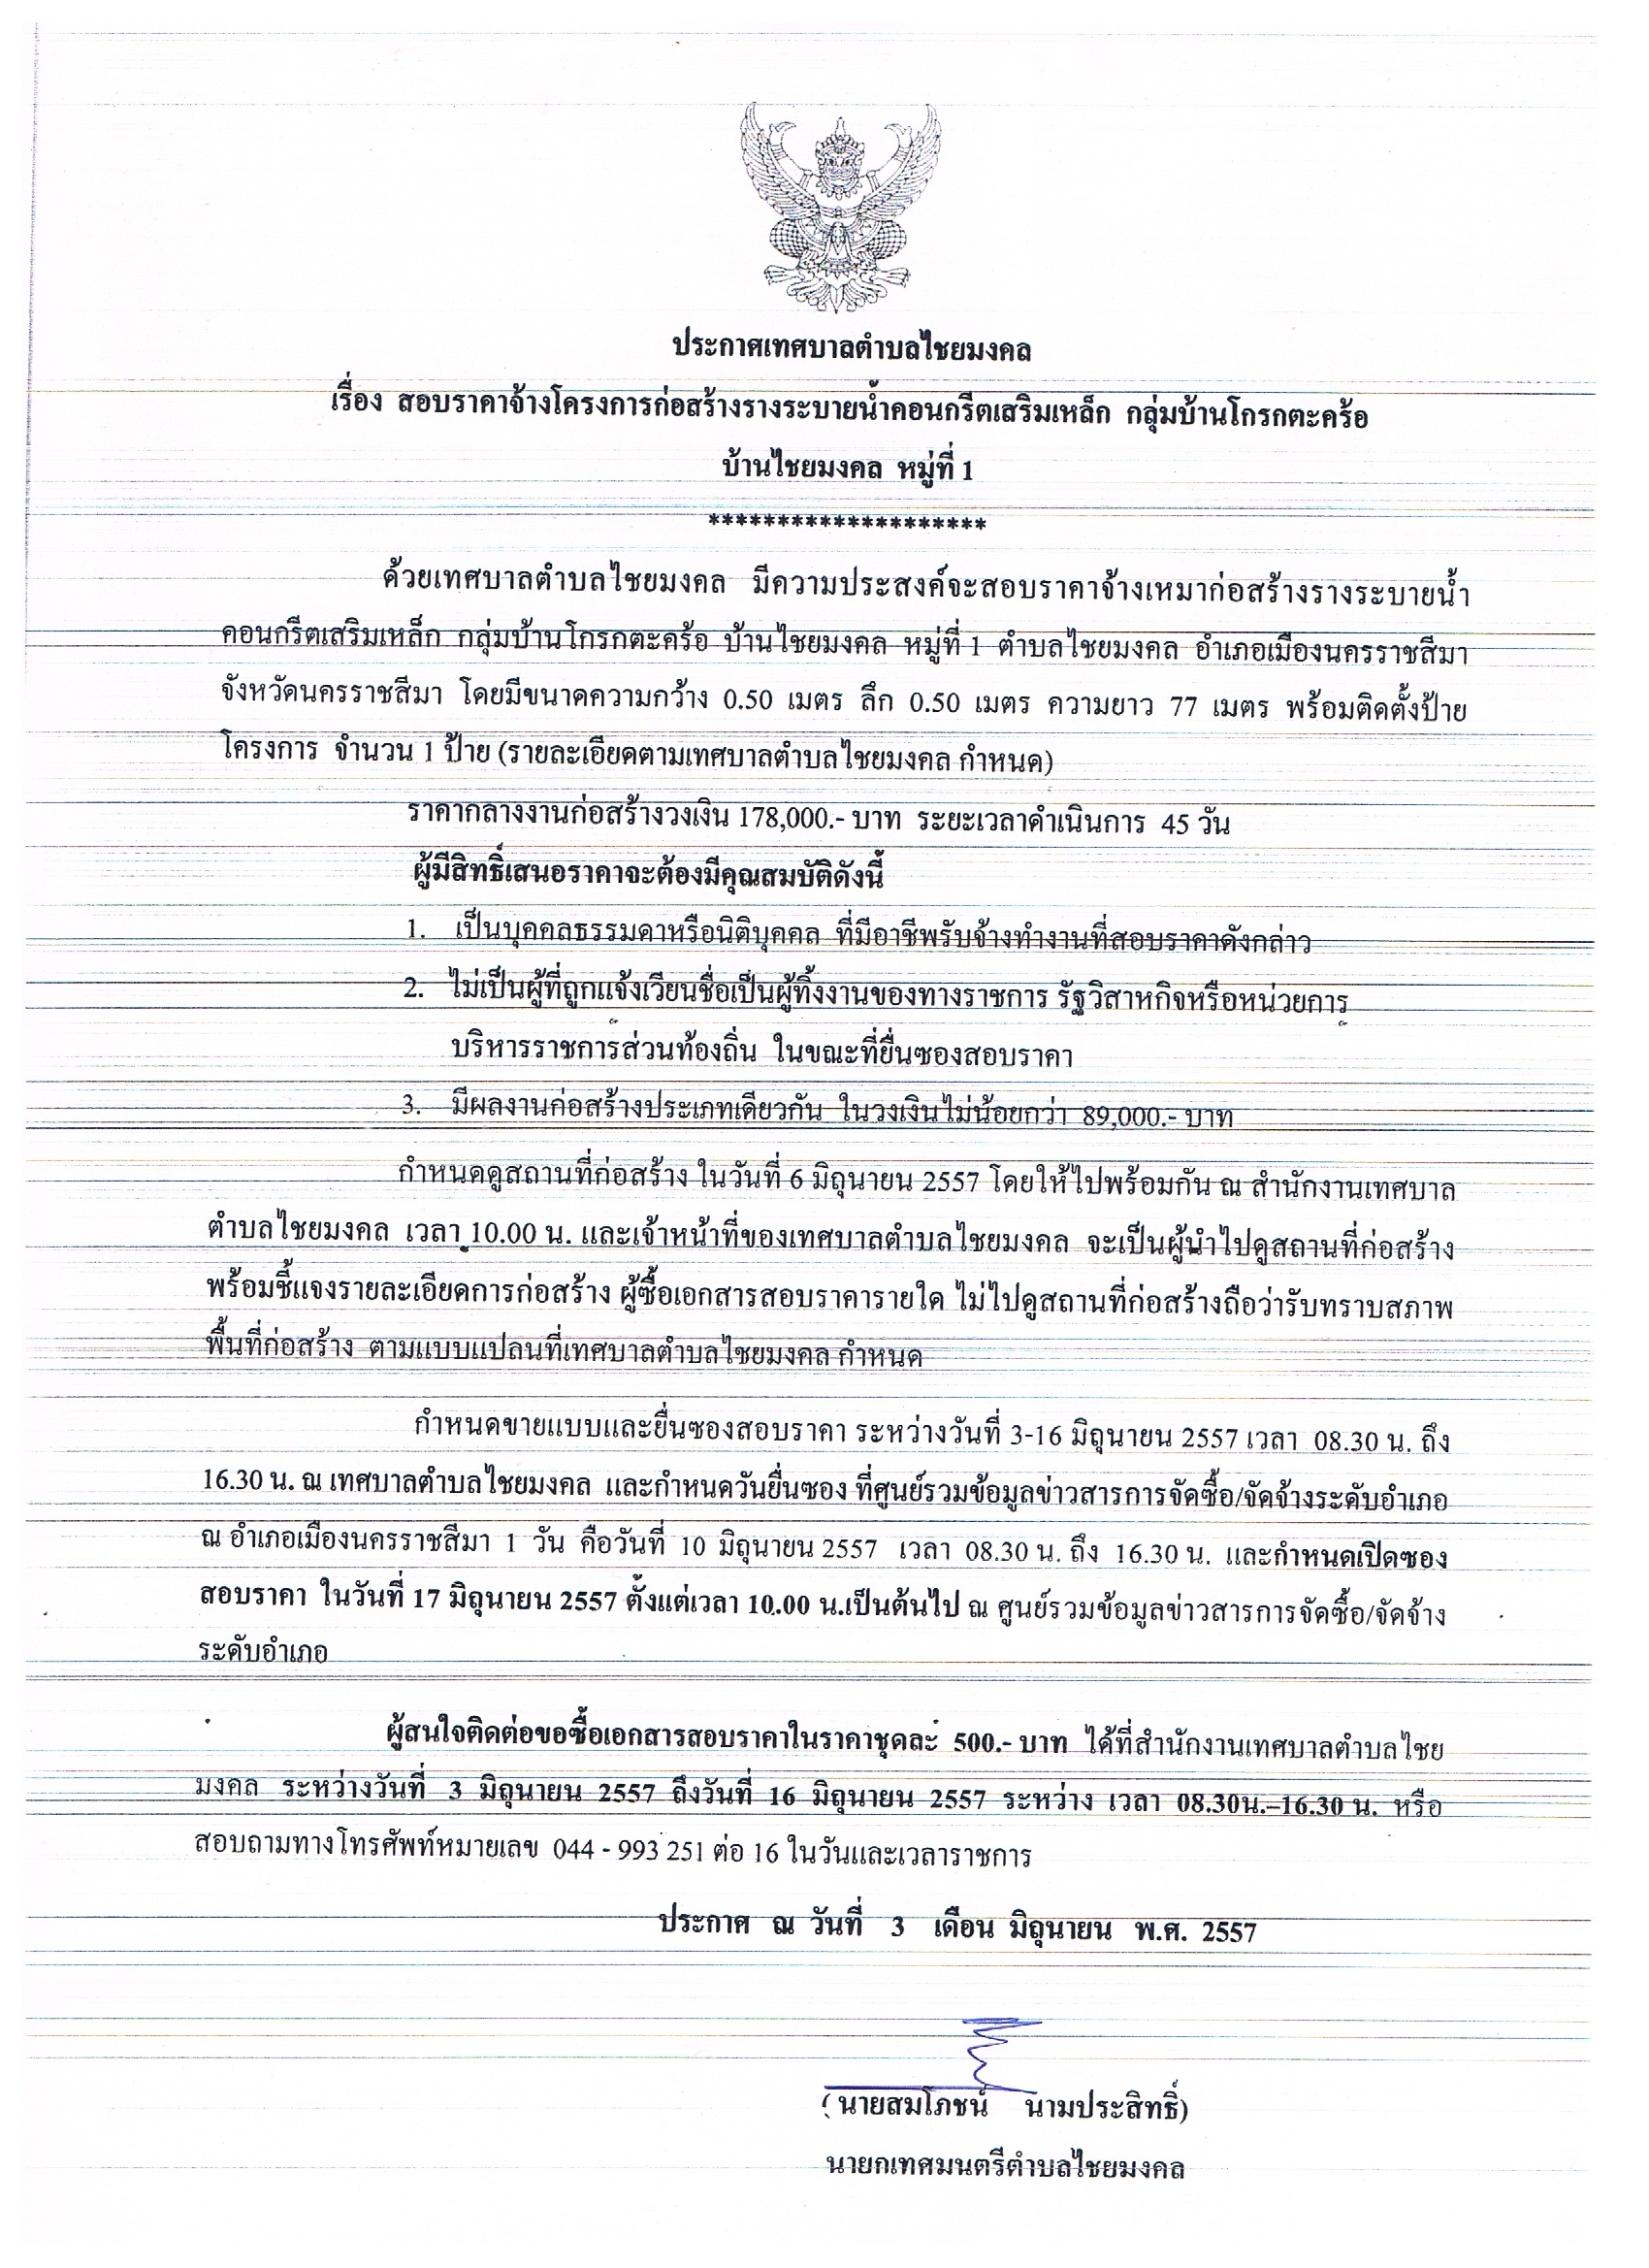 ประกาศเทศบาลตำบลไชยมงคล
เรื่อง สอบราคาจ้างโครงการก่อสร้างรางระบายน้ำคอนกรีตเสริมเหล็ก กลุ่มบ้านโกรกตะคร้อ
บ้านไชยมงคล หมู่ที่ 1
********************
ด้วยเทศบาลตำบลไชยมงคล มีความประสงค์จะสอบราคาจ้างเหมาก่อสร้างรางระบายน้ำ
คอนกรีตเสริมเหล็ก กลุ่มบ้านโกรกตะคร้อ บ้านไชยมงคล หมู่ที่ 1 ตำบลไชยมงคล อำเภอเมืองนครราชสีมา
จังหวัดนครราชสีมา โดยมีขนาดความกว้าง 0.50 เมตร ลึก 0.50 เมตร ความยาว 77 เมตร พร้อมติดตั้งป้าย
โครงการ จำนวน 1 ป้าย (รายละเอียดตามเทศบาลตำบลไชยมงคล กำหนด)
ราคากลางงานก่อสร้างวงเงิน 178,000.- บาท ระยะเวลาดำเนินการ 45 วัน
ผู้มีสิทธิ์เสนอราคาจะต้องมีคุณสมบัติดังนี้
1. เป็นบุคคลธรรมดาหรือนิติบุคคล ที่มีอาชีพรับจ้างทำงานที่สอบราคาดังกล่าว
2. ไม่เป็นผู้ที่ถูกแจ้งเวียนชื่อเป็นผู้ทิ้งงานของทางราชการ รัฐวิสาหกิจหรือหน่วยการ
บริหารราชการส่วนท้องถิ่น ในขณะที่ยื่นซองสอบราคา
3. มีผลงานก่อสร้างประเภทเดียวกัน ในวงเงินไม่น้อยกว่า 89,000.- บาท
กำหนดดูสถานที่ก่อสร้าง ในวันที่ 6 มิถุนายน 2557 โดยให้ไปพร้อมกัน ณ สำนักงานเทศบาล
ตำบลไชยมงคล เวลา 10.00 น. และเจ้าหน้าที่ของเทศบาลตำบลไชยมงคล จะเป็นผู้นำไปดูสถานที่ก่อสร้าง
พร้อมชี้แจงรายละเอียดการก่อสร้าง ผู้ซื้อเอกสารสอบราคารายใด ไม่ไปดูสถานที่ก่อสร้างถือว่ารับทราบสภาพ
พื้นที่ก่อสร้าง ตามแบบแปลนที่เทศบาลตำบลไชยมงคล กำหนด
กำหนดขายแบบและยื่นซองสอบราคา ระหว่างวันที่ 3-16 มิถุนายน 2557 เวลา 08.30 น. ถึง
16.30 น. ณ เทศบาลตำบลไชยมงคล และกำหนดวันยื่นซอง ที่ศูนย์รวมข้อมูลข่าวสารการจัดซื้อ/จัดจ้างระดับอำเภอ
ณ อำเภอเมืองนครราชสีมา 1 วัน คือวันที่ 10 มิถุนายน 2557 เวลา 08.30 น. ถึง 16.30 น. และกำหนดเปิดซอง
สอบราคา ในวันที่ 17 มิถุนายน 2557 ตั้งแต่เวลา 10.00 น.เป็นต้นไป ณ ศูนย์รวมข้อมูลข่าวสารการจัดซื้อ/จัดจ้าง
ระดับอำเภอ
ผู้สนใจติดต่อขอซื้อเอกสารสอบราคาในราคาชุดละ 500.- บาท ได้ที่สำนักงานเทศบาลตำบลไชย
มงคล ระหว่างวันที่ 3 มิถุนายน 2557 ถึงวันที่ 16 มิถุนายน 2557 ระหว่าง เวลา 08.30น.–16.30 น. หรือ
สอบถามทางโทรศัพท์หมายเลข 044 - 993 251 ต่อ 16 ในวันและเวลาราชการ
ประกาศ ณ วันที่ 3 เดือน มิถุนายน พ.ศ. 2557
(นายสมโภชน์ นามประสิทธิ์)
นายกเทศมนตรีตำบลไชยมงคล